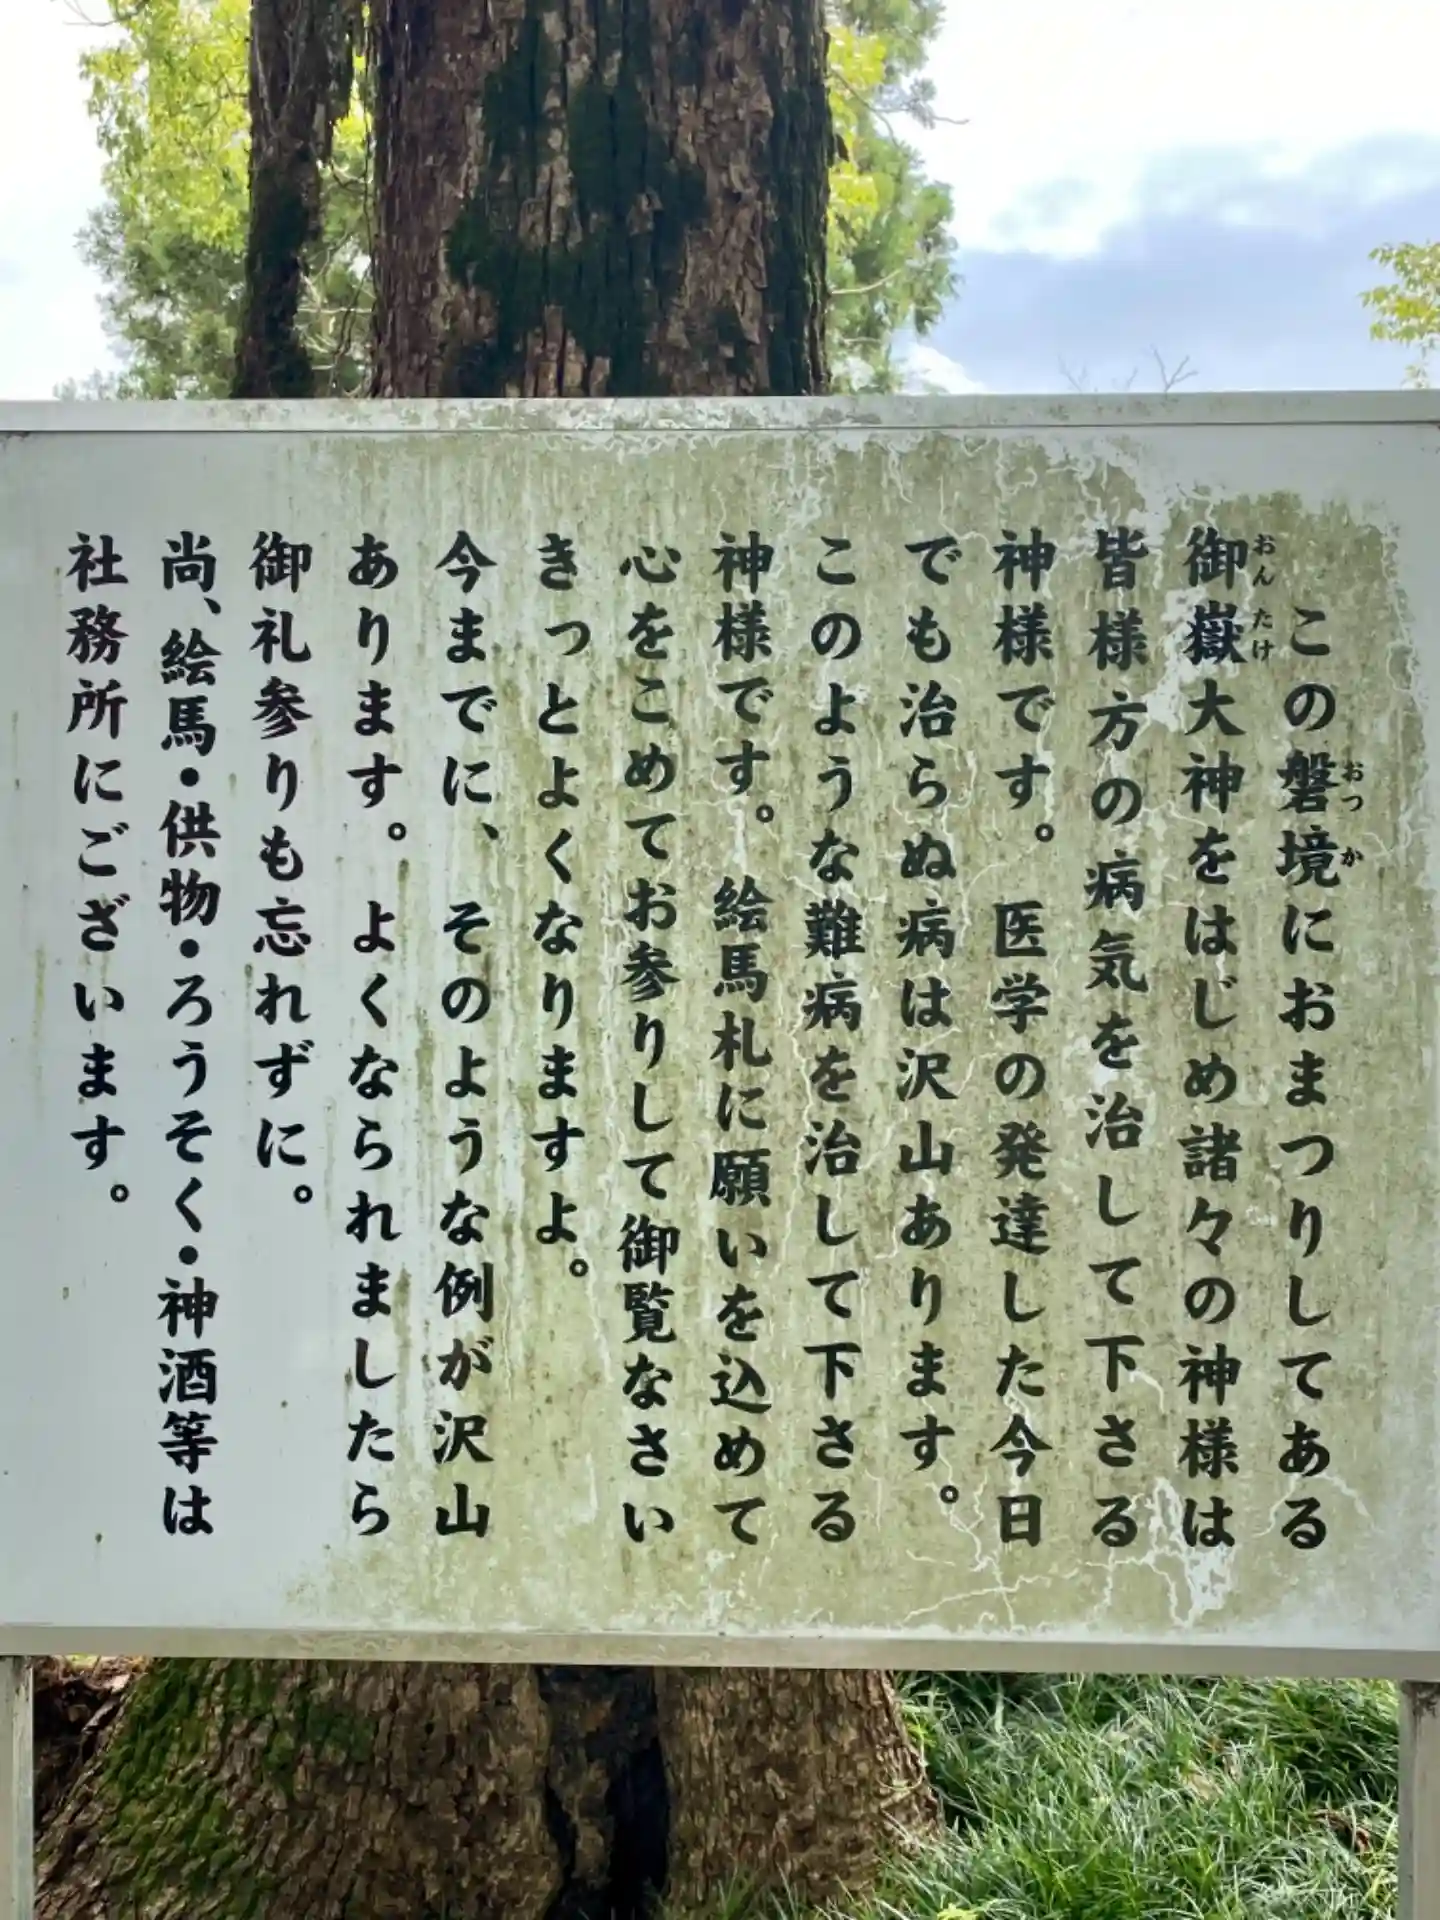 この磐境におまつりしてある
御嶽大神をはじめ諸々の神様は
皆様方の病気を治して下さる
神様です。医学の発達した今日
でも治らぬ病は沢山あります。
このような難病を治して下さる
神様です。絵馬札に願いを込めて
心をこめてお参りして御覧なさい
きっとよくなりますよ。
今までに、そのような例が沢山
あります。よくなられましたら
御礼参りも忘れずに。
尚、絵馬・供物・ろうそく・神酒等は
社務所にございます。
おつか
おんたけ